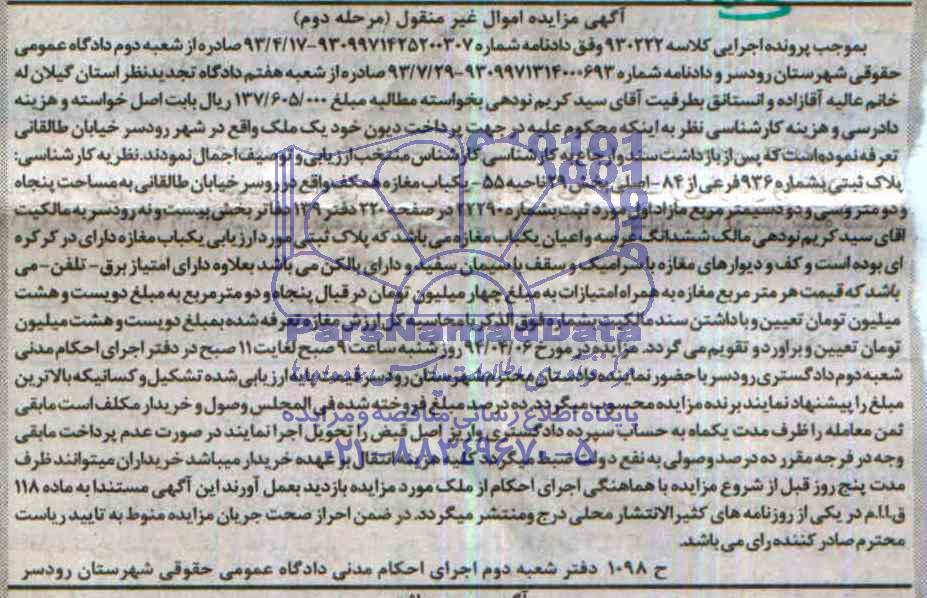 آگهی مزایده اموال غیر منقول (مرحله دوم)
بموجب پرونده اجرایی کلاسه ۹۳۰۲۲۲ وفق دادنامه شماره ۹۳۰۹۹۷۱۴۲۵۲۰۰۳۰۷-۹۳/۴/۱۷ صادره از شعبه دوم دادگاه عمومی
حقوقی شهرستان رودسر و دادنامه شماره ۹۳۰۹۹۷۱۳۱۴۰۰۰۶۹۳-۹۳/۷/۲۹ صادره از شعبه هفتم دادگاه تجدیدنظر استان گیلان له
خانم عالیه آقازاده و انستانق بطرفیت آقای سید کریم نودهی بخواسته مطالبه مبلغ ۱۳۷/۶۰۵/۰۰۰ ریال بابت اصل خواسته و هزینه
دادرسی و هزینه کارشناسی نظر به اینکه محکوم علیه در جهت پرداخت دیون خود یک ملک واقع در شهر رودسر خیابان طالقانی
تعرفه نموده است که پس از بازداشت سند و ارجاع به کارشناسی، کارشناس منتخب ارزیابی و توصیف اجمال نمودند. نظریه کارشناسی:
پلاک ثبتی بشماره ۹۳۶ فرعی از ۸۴-اصلی بخش ۲۹ ناحیه ۵۵-یکباب مغازه همکف واقع در روسر خیابان طالقانی به مساحت پنجاه
و دو متر و سی و دو دسیمتر مربع مازاد اول مورد ثبت بشماره ۲۲۲۹۰ در صفحه ۲۲۰ دفتر ۱۳۹ دفاتر بخش بیست و نه رودسر به مالکیت
آقای سید کریم نودهی مالک ششدانگ عرصه و اعیان یکباب مغازه می باشد که پلاک ثبتی مورد ارزیابی یکباب مغازه دارای در کرکره
ای بوده است و کف و دیوارهای مغازه با سرامیک و سقف با سیمان سفید و دارای بالکن می باشد بعلاوه دارای امتیاز برق-تلفن-می
باشد که قیمت هر متر مربع مغازه به همراه امتیازات به مبلغ چهار میلیون تومان در قبال پنجاه و دو متر مربع به مبلغ دویست و هشت
میلیون تومان تعیین و با داشتن سند مالکیت بشماره فوق الذکر با محاسبه کل ارزش مغازه تعرفه شده بمبلغ دویست و هشت میلیون
تومان تعیین و برآورد و تقویم می گردد. مزایده در مورخ ۹۴/۰۴/۰۶ روز شنبه ساعت ۹ صبح لغایت ۱۱ صبح در دفتر اجرای احکام مدنی
شعبه دوم دادگستری رودسر با حضور نماینده دادستان محترم شهرستان رودسر قیمت پایه ارزیابی شده تشکیل و کسانیکه بالاترین
مبلغ را پیشنهاد نمایند برنده مزایده محسوب میگردد. ده درصد مبلغ فروخته شده فی المجلس وصول و خریدار مکلف است مابقی
ثمن معامله را ظرف مدت یکماه به حساب سپرده دادگستری واریز اصل قبض را تحویل اجرا نمایند در صورت عدم پرداخت مابقی
وجه در فرجه مقرر ده درصد وصولی به نفع دولت ضبط میگردد کلیه هزینه انتقال بر عهده خریدار میباشد خریداران میتوانند ظرف
مدت پنج روز قبل از شروع مزایده با هماهنگی اجرای احکام از ملک مورد مزایده بازدید بعمل آورند این آگهی مستندا به ماده ۱۱۸
ق.ا.ا.م در یکی از روزنامه های کثیرالانتشار محلی درج و منتشر میگردد. در ضمن احراز صحت جریان مزایده منوط به تایید ریاست
محترم صادر کننده رای می باشد.
ح ۱۰۹۸ دفتر شعبه دوم اجرای احکام مدنی دادگاه عمومی حقوقی شهرستان رودسر
ParsNamadData
پایگاه اطلاع رسانی مناقصه و مزایده
۰۲۱-۸۸۳۴۹۶۷۰-۵